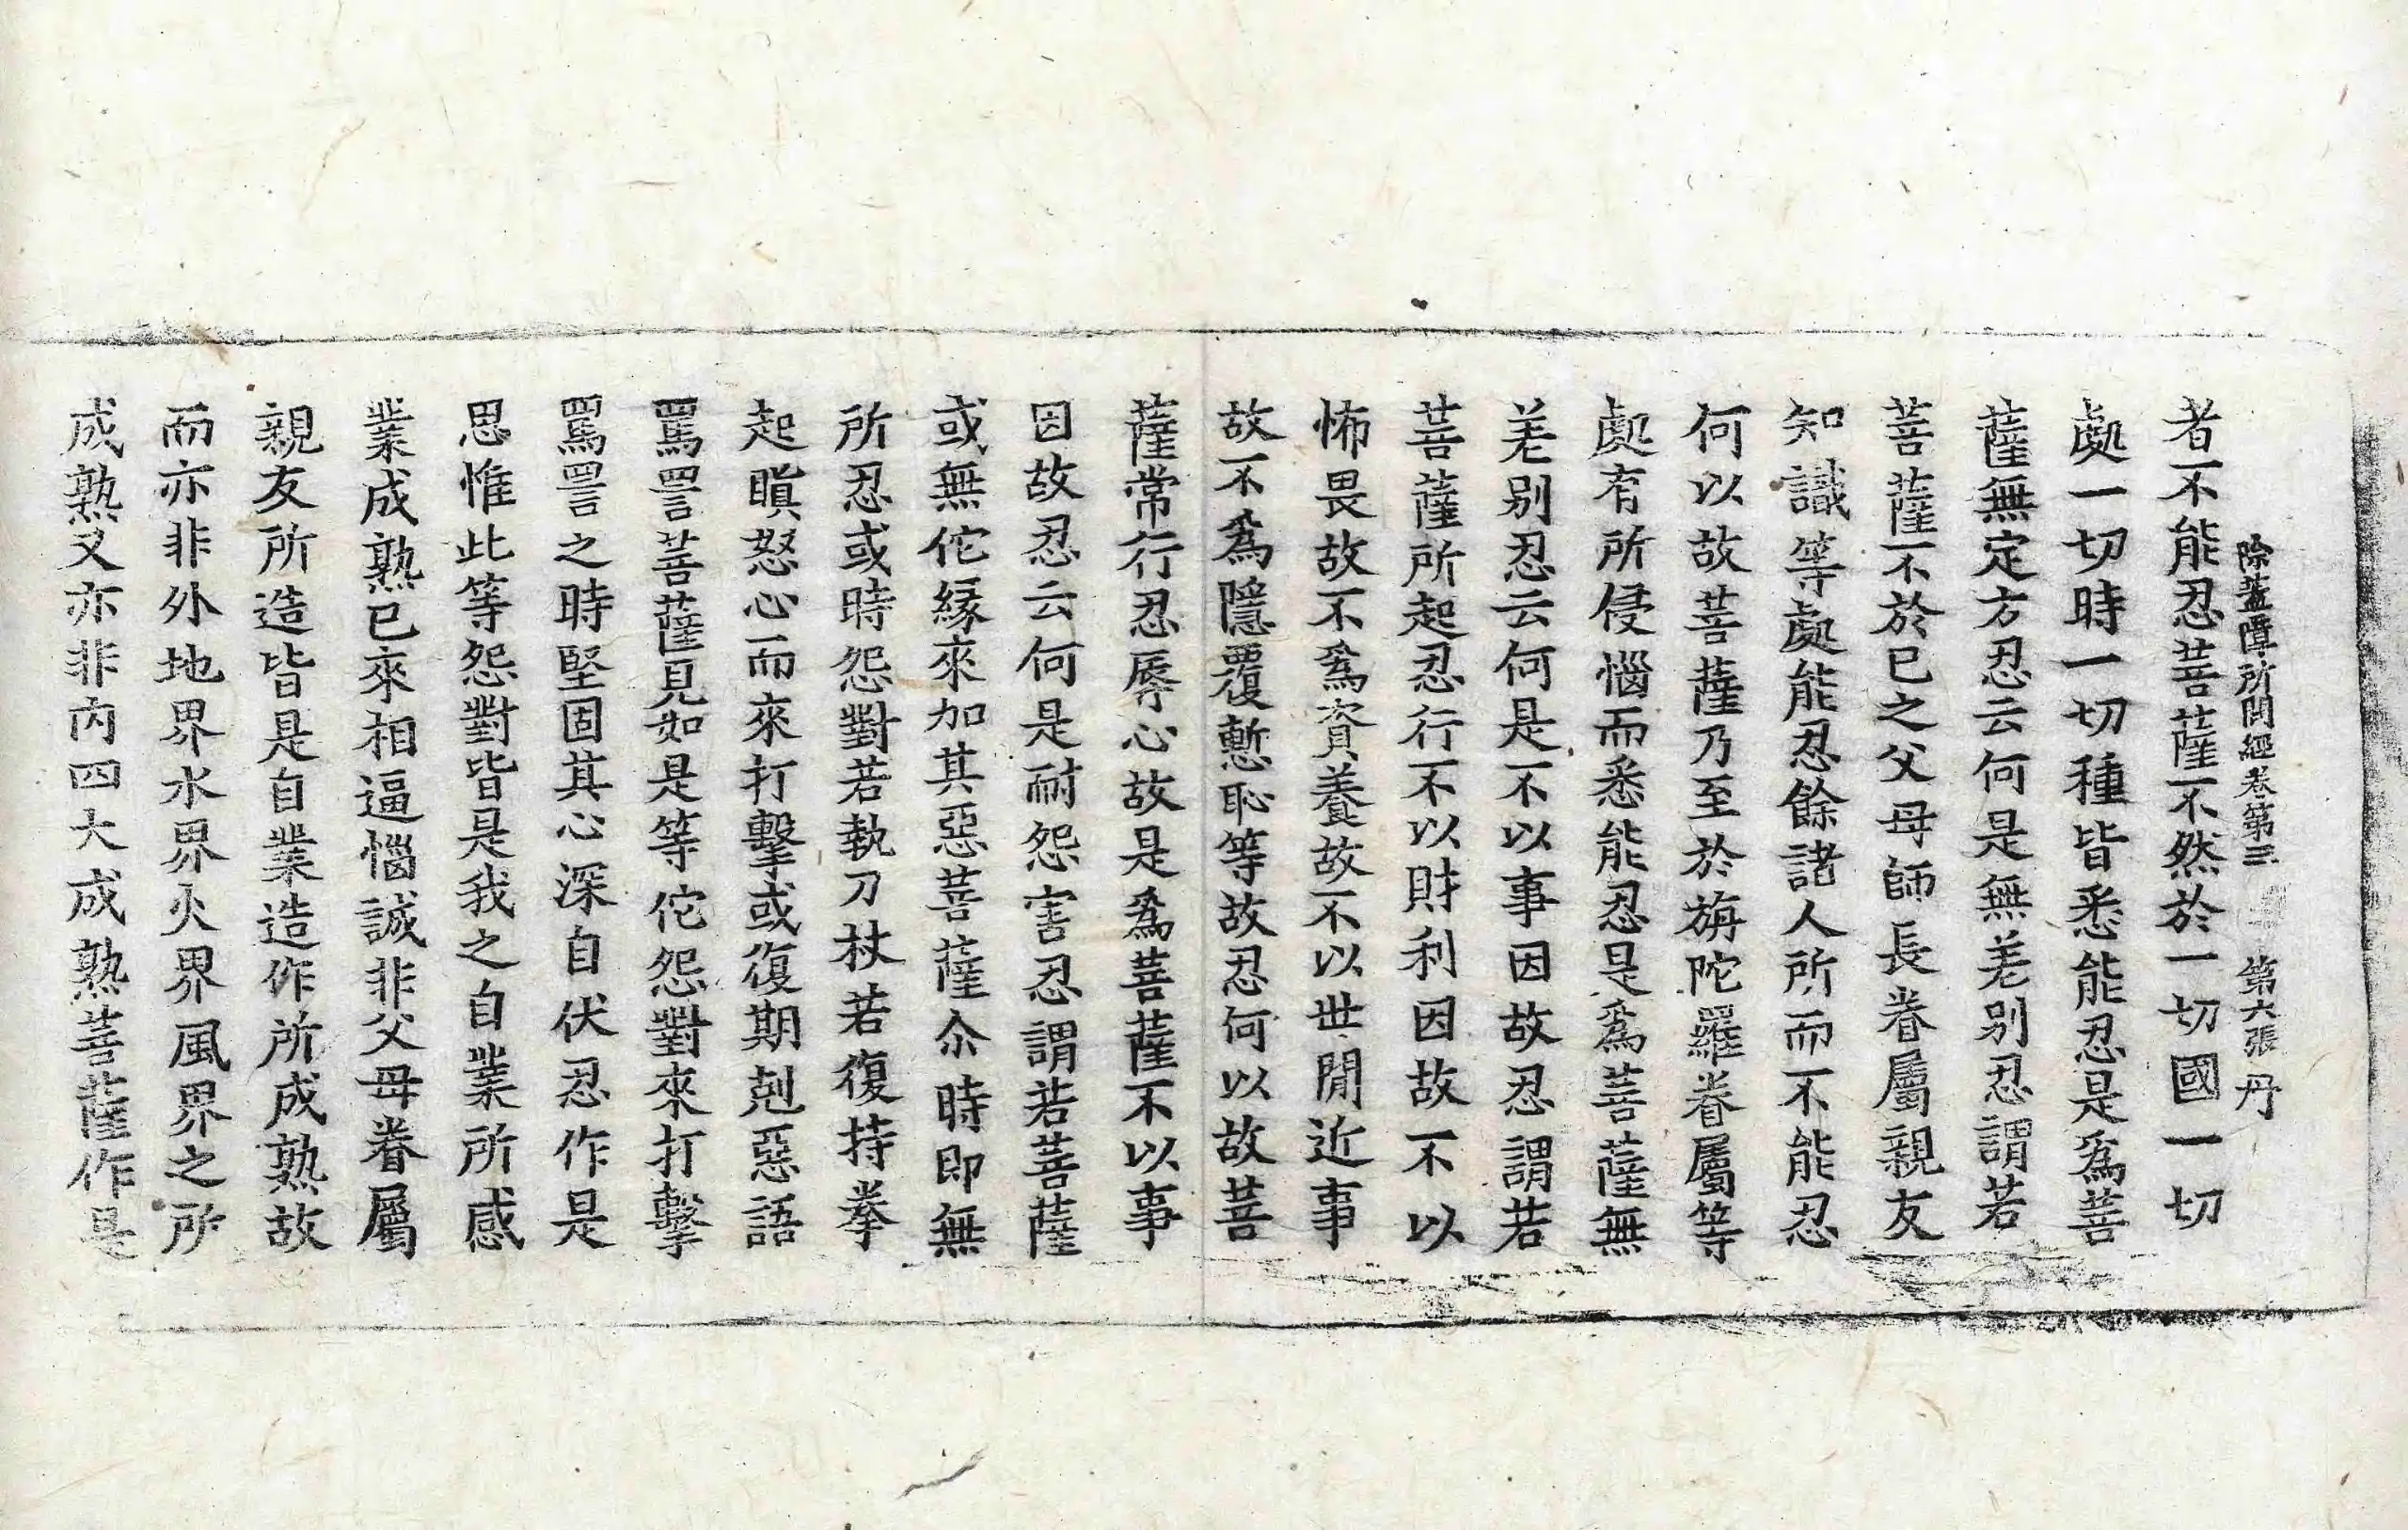 除蓋障所問經卷第三 第六張 丹
者不能忍菩薩不然於一切國一切
處一切時一切種皆悉能忍是爲菩
薩無定方忍云何是無差别忍謂若
菩薩不於已之父母師長眷屬親友
知識等處能忍餘諸人所而不能忍
何以故菩薩乃至於旃陀羅眷屬等
處有所侵惱而悉能忍是爲菩薩無
差别忍云何是不以事因故忍謂若
菩薩所起忍行不以財利因故不以
怖畏故不爲資養故不以世間近事
故不爲隱覆慙恥等故忍何以故菩
薩常行忍辱心故是爲菩薩不以事
因故忍云何是耐怨害忍謂若菩薩
或無佗緣來加其惡菩薩尒時即無
所忍或時怨對若執刀杖若復持拳
起瞋怒心而來打擊或復期剋惡語
罵詈菩薩見如是等佗怨對來打擊
罵詈之時堅固其心深自伏忍作是
思惟此等怨對皆是我之自業所感
業成熟已來相逼惱誠非父母眷屬
親友所造皆是自業造作所成熟故
而亦非外地界水界火界風界之所
成熟又亦非内四大成熟菩薩作是